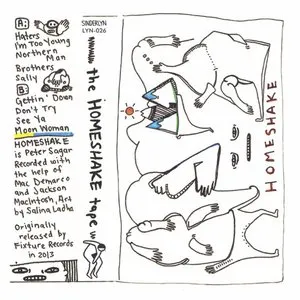 A:
Haters
I'm Too Young
Northern
Man
Brothers
Sally
B:
Gettin' Down
Don't Try
See Ya
Moon Woman
HOMESHAKE
is Peter Sagar
Recorded with
the help of
Mac Demarco
and Jackson
MacIntosh, Art
by Salina Ladha
Originally
released by
Fixture Records
in 2013
SINDERLYN
LYN-026
the HOMESHAKE tape
HOMESHAKE